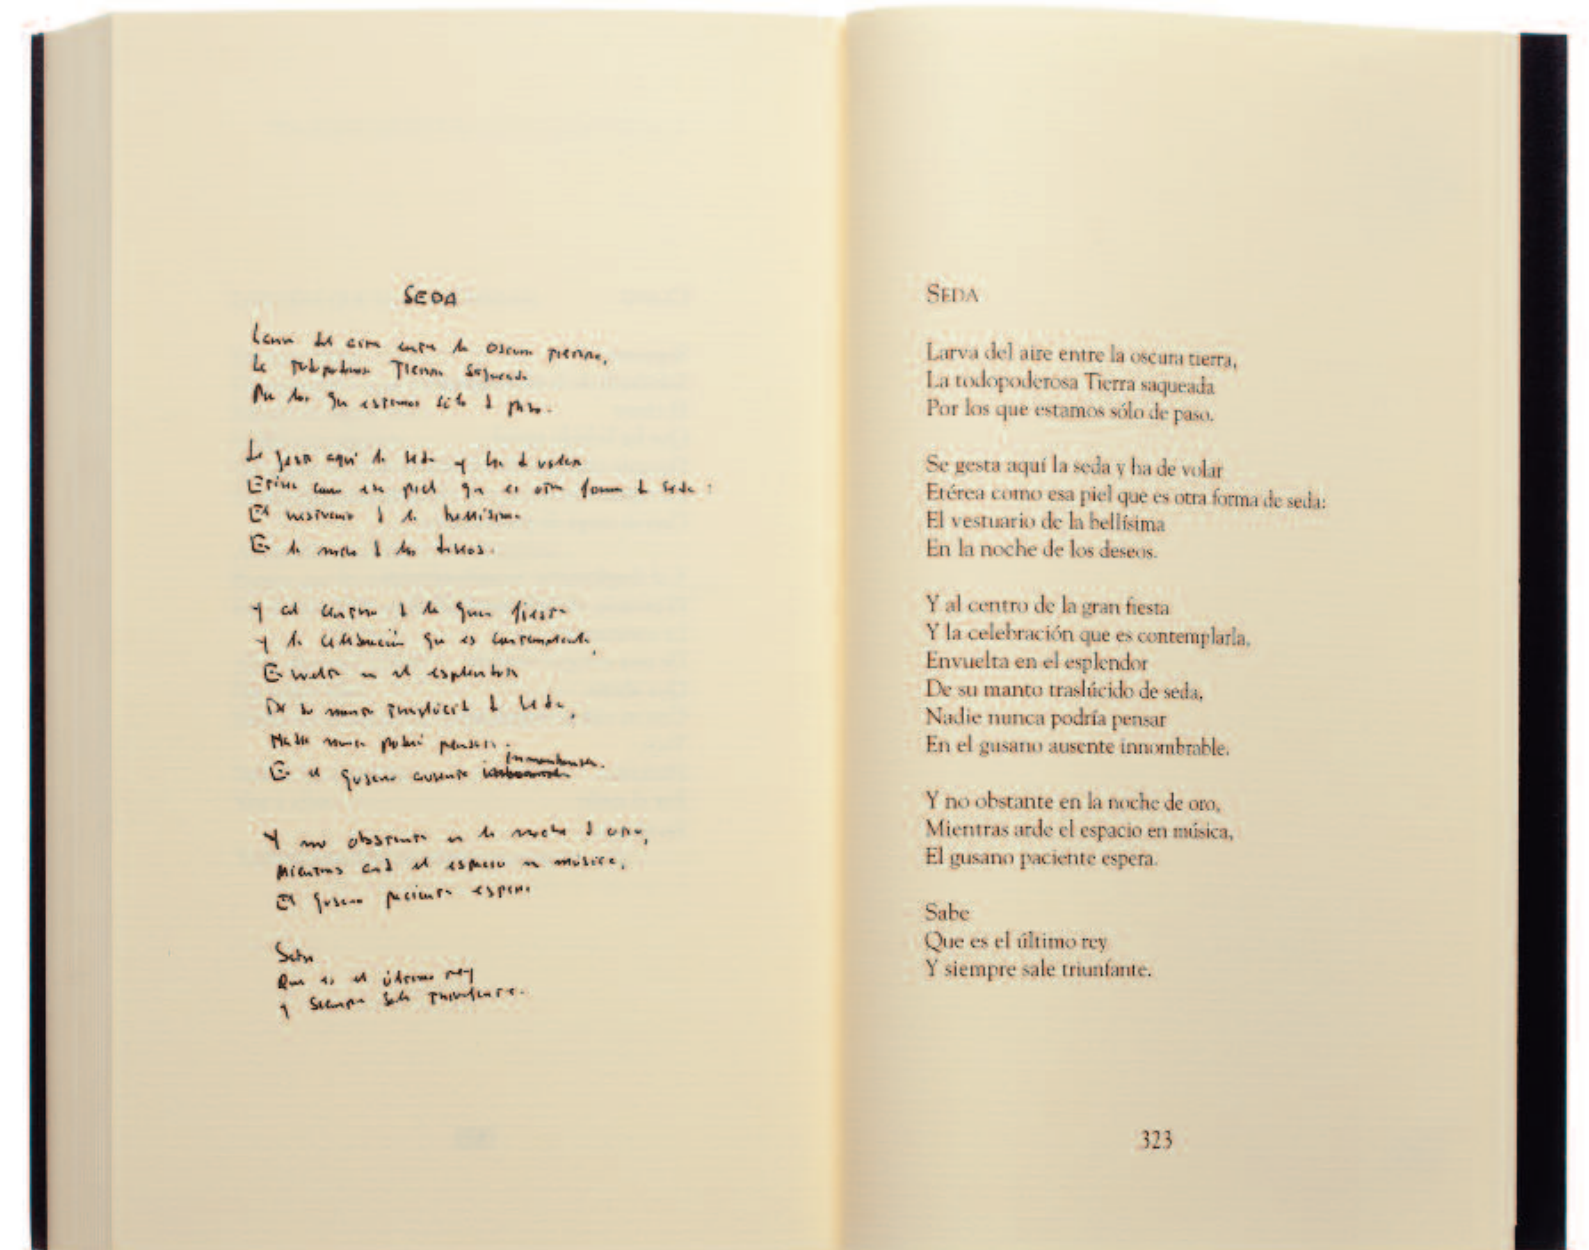 SEDA
Larva del aire entre la oscura tierra,
La todopoderosa Tierra saqueada
Por los que estamos sólo de paso.
Se gesta aquí la seda y ha de volar
Etérea como esa piel que es otra forma de seda:
El vestuario de la bellísima
En la noche de los deseos.
Y al centro de la gran fiesta
Y la celebración que es contemplarla,
Envuelta en el esplendor
De su manto traslúcido de seda,
Nadie nunca podrá pensar
En el gusano ausente innombrable.
Y no obstante en la noche de oro,
Mientras arde el espacio en música,
El gusano paciente espera.
Sabe
Que es el último rey
Y siempre sale triunfante.
SEDA
Larva del aire entre la oscura tierra,
La todopoderosa Tierra saqueada
Por los que estamos sólo de paso.
Se gesta aquí la seda y ha de volar
Etérea como esa piel que es otra forma de seda:
El vestuario de la bellísima
En la noche de los deseos.
Y al centro de la gran fiesta
Y la celebración que es contemplarla,
Envuelta en el esplendor
De su manto traslúcido de seda,
Nadie nunca podría pensar
En el gusano ausente innombrable.
Y no obstante en la noche de oro,
Mientras arde el espacio en música,
El gusano paciente espera.
Sabe
Que es el último rey
Y siempre sale triunfante.
323